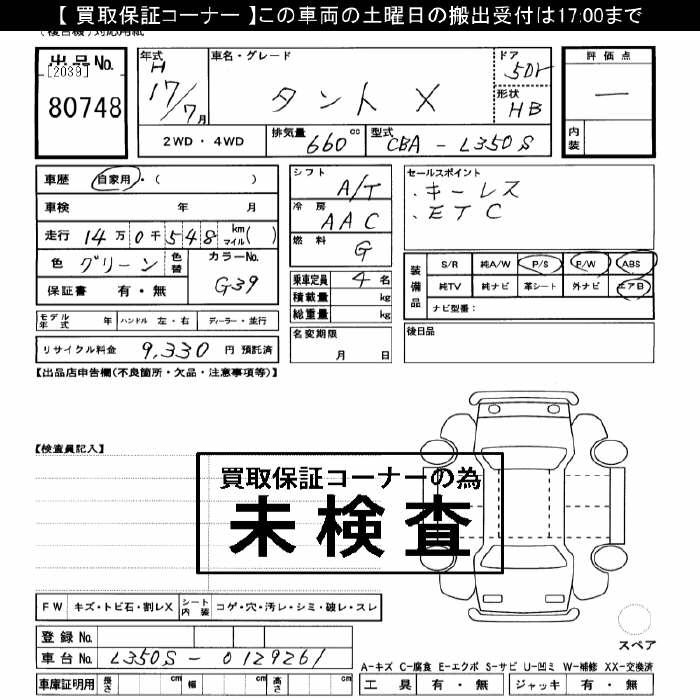 【 買取保証コーナー 】この車両の土曜日の搬出受付は17:00まで
出品No.
[2039]
80748
年式
H
17/7月
車名・グレード
タント X
ドア
5Dr
形状
HB
評価点
―
内装
2WD・4WD
排気量 660 cc
型式 CBA - L350S
車歴 自家用・( )
車検 年 月
走行 14万0千548 kmマイル( )
色 グリーン 色替
カラーNo. G39
保証書 有・無
シフト A/T
冷房 AAC
燃料 G
乗車定員 4 名
積載量 kg
総重量 kg
セールスポイント
・キーレス
・ETC
装備品
S/R 純A/W P/S P/W ABS
純TV 純ナビ 革シート 外ナビ エアB
ナビ型番：
モデル年式 年 ハンドル 左・右 ディーラー・並行
名変期限 月 日
後日品
リサイクル料金 9,330 円 預託済
【出品店申告欄(不良箇所・欠品・注意事項等)】
【検査員記入】
買取保証コーナーの為
未検査
FW キズ・トビ石・割レX
シート内装 コゲ・穴・汚レ・シミ・破レ・スレ
スペア
登録No.
車台No. L350S - 0129261
A-キズ C-腐食 E-エクボ S-サビ U-凹ミ W-補修 XX-交換済
車庫証明用 長さ cm 幅 cm 高さ cm
工具 有・無 ジャッキ 有・無